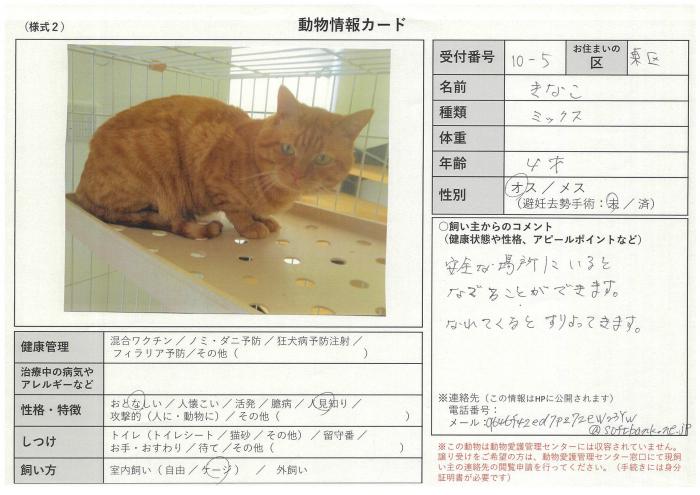 （様式２）
動物情報カード
受付番号 10-5 お住まいの区 東区
名前 きなこ
種類 ミックス
体重
年齢 4才
性別 オス／メス
（避妊去勢手術：未／済）
○飼い主からのコメント
（健康状態や性格、アピールポイントなど）
安全な場所にいると
なでることができます。
なれてくるとすりよってきます。
※連絡先（この情報はHPに公開されます）
電話番号：
メール：
@softbank.ne.jp
※この動物は動物愛護管理センターには収容されていません。
譲り受けをご希望の方は、動物愛護管理センター窓口にて現飼
い主の連絡先の閲覧申請を行ってください。（手続きには身分
証明書が必要です）
健康管理 混合ワクチン／ノミ・ダニ予防／狂犬病予防注射／
フィラリア予防／その他（ ）
治療中の病気や
アレルギーなど
性格・特徴 おとなしい／人懐こい／活発／臆病／人見知り／
攻撃的（人に・動物に）／その他（ ）
しつけ トイレ（トイレシート／猫砂／その他）／留守番／
お手・おすわり／待て／その他（ ）
飼い方 室内飼い（自由／ケージ） ／ 外飼い